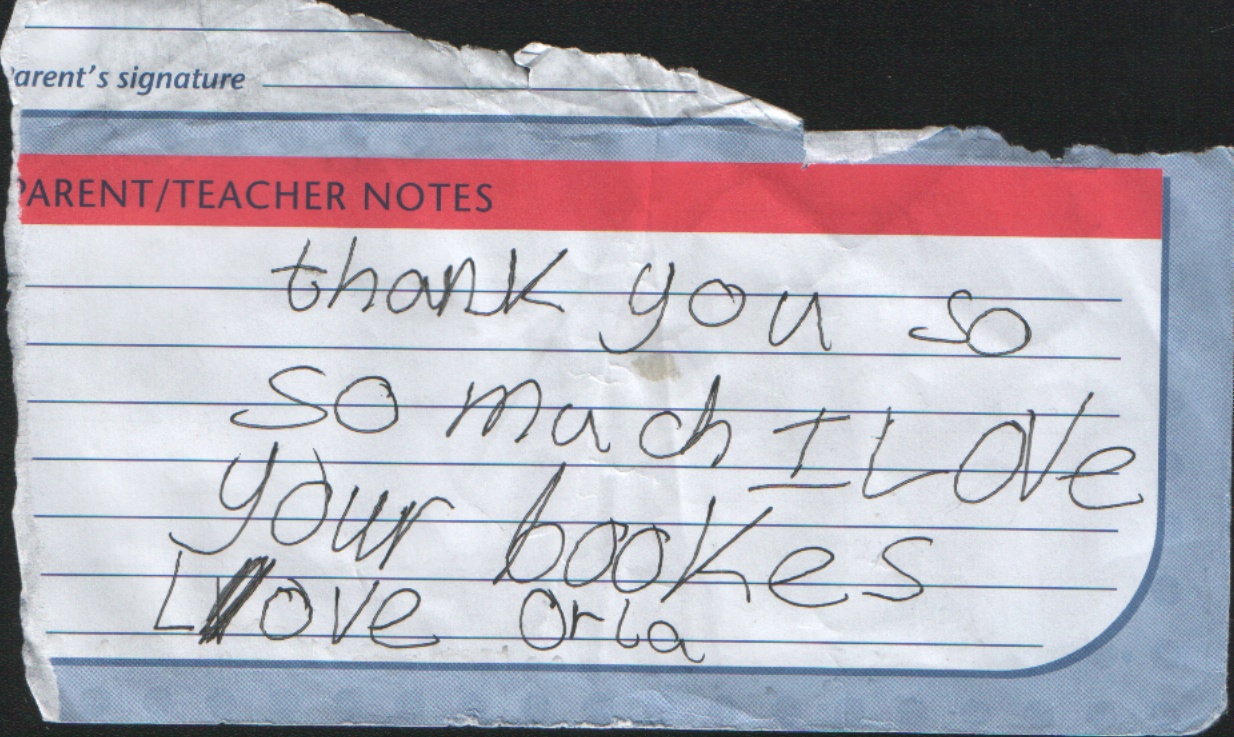 arent's signature
PARENT/TEACHER NOTES
thank you so
so much I Love
your bookes
Love Orla